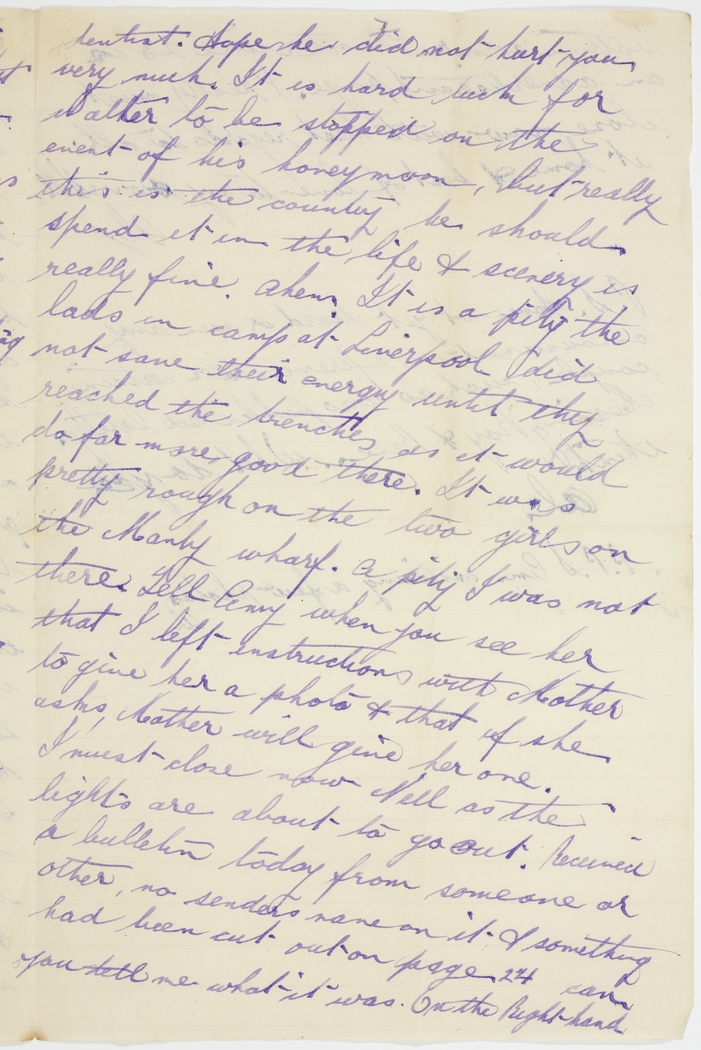 dentist. Hope he did not hurt you
very much. It is hard luck for
Walter to be stopped on the
event of his honeymoon, but really
this is the country he should
spend it in the life & scenery is
really fine. Ahem! It is a pity the
lads in camp at Liverpool did
not save their energy until they
reached the trenches as it would
do far more good there. It was
pretty rough on the two girls on
the Manly wharf. A pity I was not
there. Tell Amy when you see her
that I left instructions with Mother
to give her a photo & that if she
asks, Mother will give her one.
I must close now Nell as the
lights are about to go out. Received
a bulletin today from someone or
other, no senders name on it & something
had been cut out on page 24 can
you tell me what it was. On the Right hand